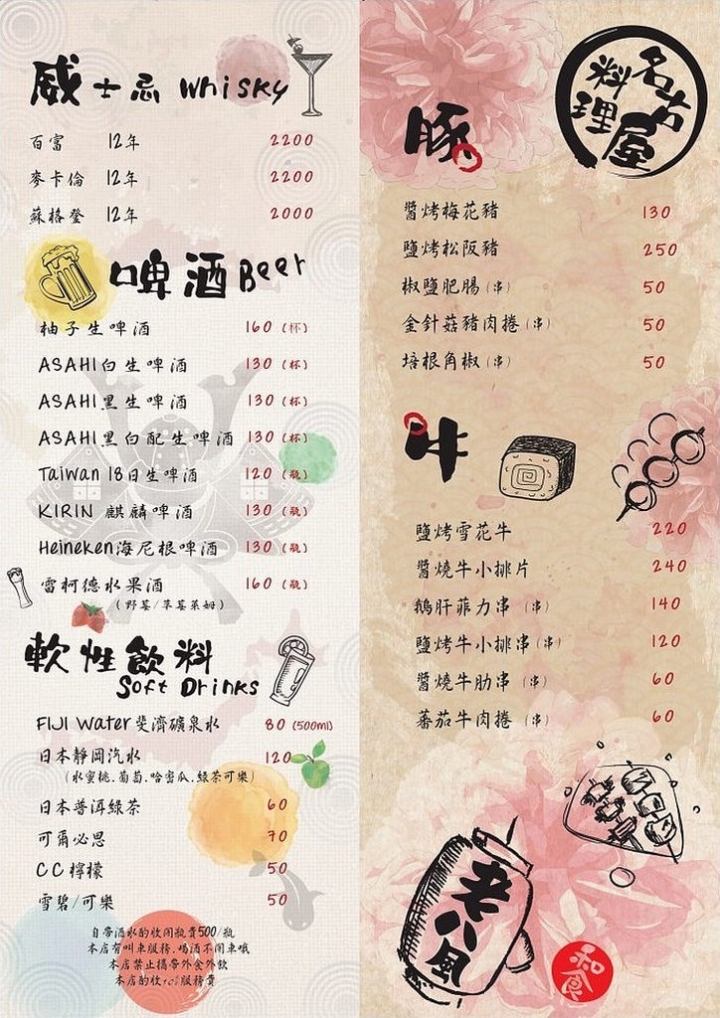 威士忌 Whisky
百富 12年 2200
麥卡倫 12年 2200
蘇格登 12年 2000
啤酒 Beer
柚子生啤酒 160 (杯)
ASAHI白生啤酒 130 (杯)
ASAHI黑生啤酒 130 (杯)
ASAHI黑白配生啤酒 130 (杯)
Taiwan 18日生啤酒 120 (瓶)
KIRIN 麒麟啤酒 130 (瓶)
Heineken海尼根啤酒 130 (瓶)
雷柯德水果酒 160 (瓶)
(野莓/草莓萊姆)
軟性飲料
Soft Drinks
FIJI Water斐濟礦泉水 80 (500ml)
日本靜岡汽水 120
(水蜜桃.葡萄.哈密瓜.綠茶可樂)
日本普洱綠茶 60
可爾必思 70
CC檸檬 50
雪碧/可樂 50
自帶酒水酌收開瓶費500/瓶
本店有叫車服務.喝酒不開車哦
本店禁止攜帶外食外飲
本店酌收 服務費
名古屋
料理
豚
醬烤梅花豬 130
鹽烤松阪豬 250
椒鹽肥腸(串) 50
金針菇豬肉捲(串) 50
培根角椒(串) 50
牛
鹽烤雪花牛 220
醬燒牛小排片 240
鵝肝菲力串(串) 140
鹽烤牛小排串(串) 120
醬燒牛肋串(串) 60
蕃茄牛肉捲(串) 60
老八風
和食